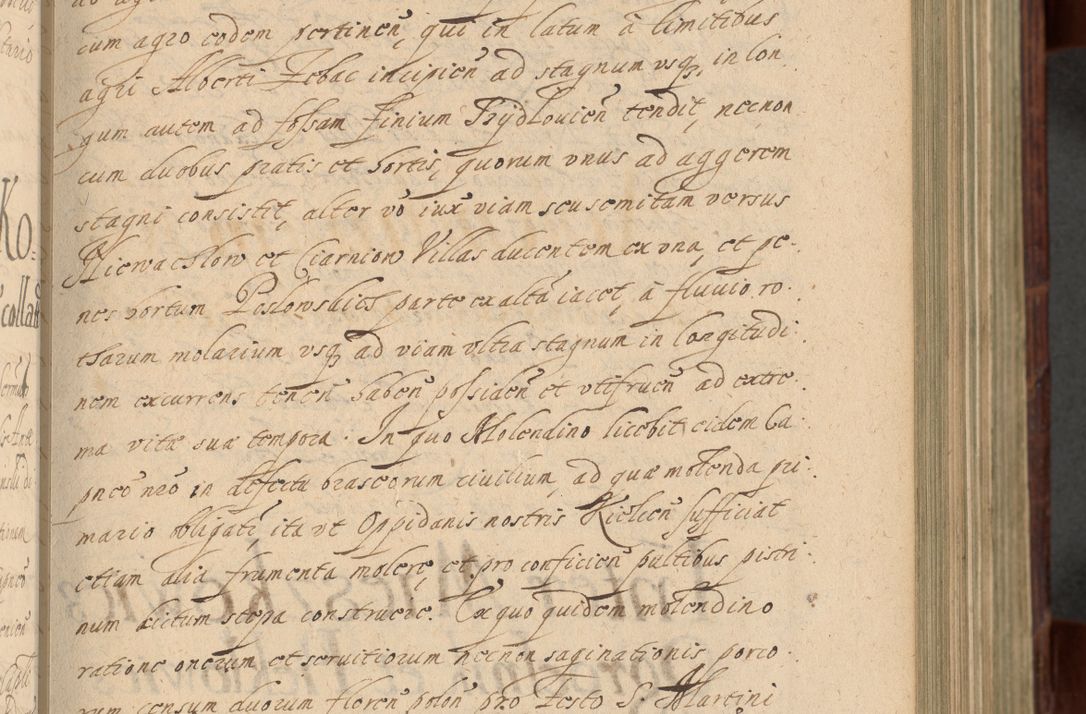 cum agro eodem pertinen̄, qui in latum à limitibus
agri Alberti Zebac incipien̄ ad stagnum vsq̃, in lon
gum autem ad fossam finium Przydłouien̄ tendit, necnon
cum duobus pratis et hortis, quorum vnus ad aggerem
stagni consistit, alter vō iux̄ viam seu semitam versus
Niewachlow et Czarniow Villas ducentem ex vna, et pe-
nes hortum Posłowskich parte ex altā iacet, à fluuio ro-
tharum molarium vsq̃ ad viam vltra stagnum in longitudi-
nem excurrens tenen̄ haben̄ possiden̄ et vtifruen̄ ad extre-
ma vitæ suæ tempora. In quo Molendino licebit eidem Ca-
pneō nrō in defectu braseorum ciuilium, ad quæ molenda pri-
mario obligatr̃, ita vt Oppidanis nostris Kielcen̄ sufficiat
etiam alia frumenta molere, et pro conficien̄ pultibus pistri-
num dictum stepa construere. Ex quo quidem molendino
ratione onerum et seruitiorum necnon saginationis porco-
rum censum duorum floren̄ polon̄ pro Festo S. Martini